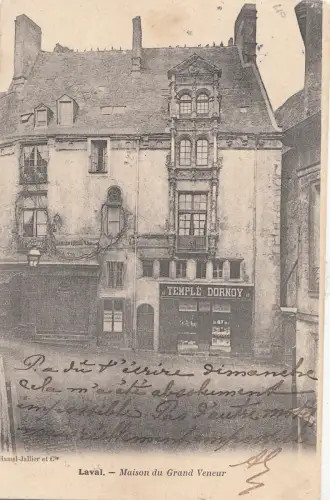 TEMPLE DORNOY
Pa dû t'écrire dimanche
cela m'a été absolument
impossible Pas d'autre
impossible
Hamel-Jallier et Cie
Laval. — Maison du Grand Veneur